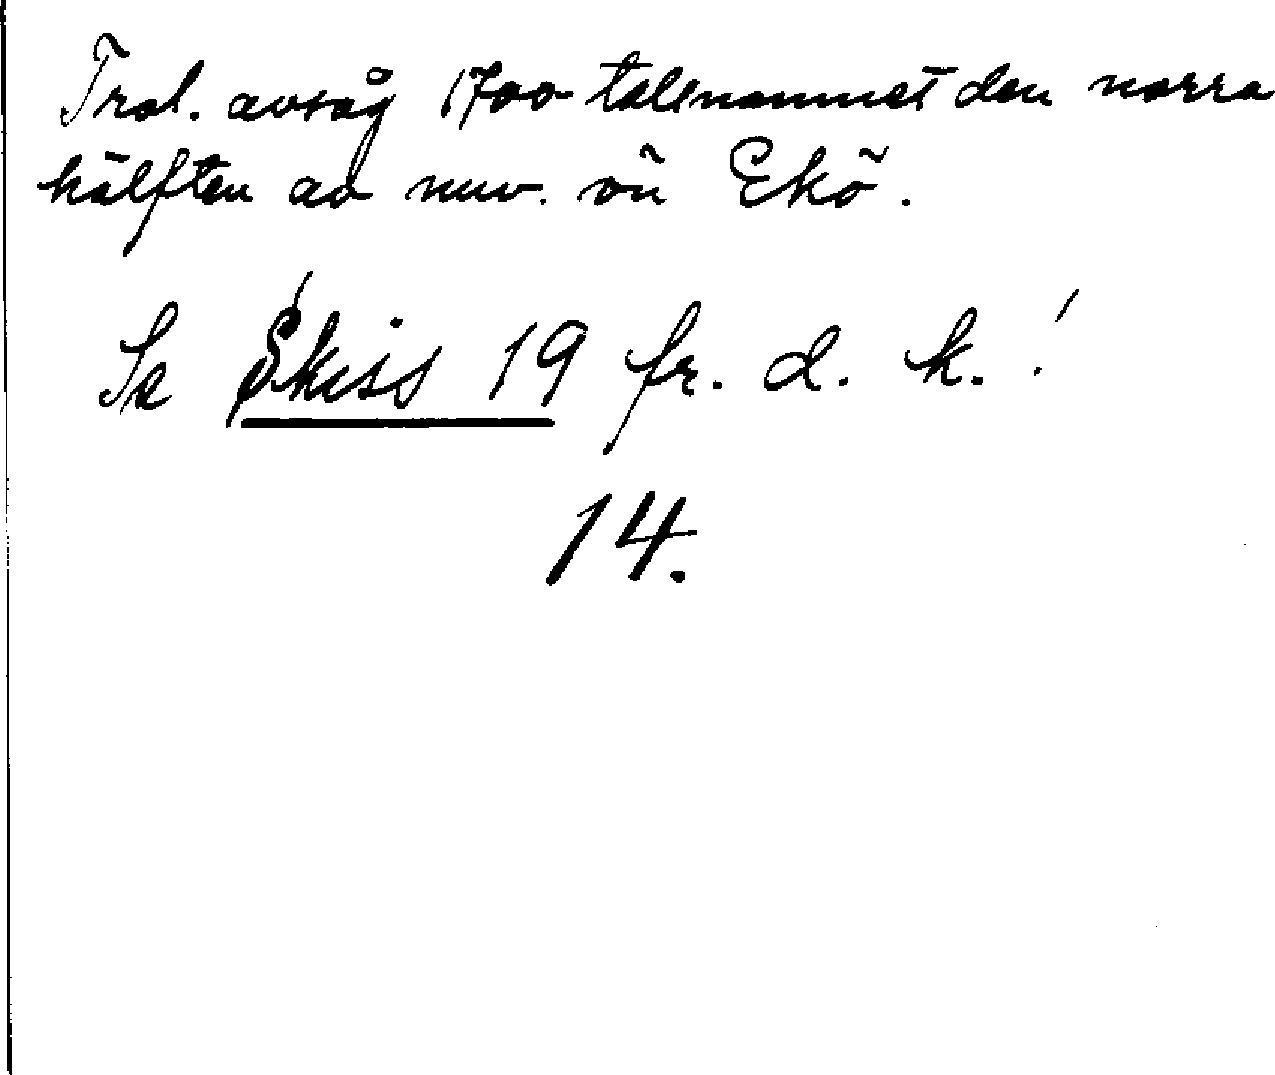 Trol. avsåg 1700-talsnamnet den norra
hälften av nuv. ön Ekö.
Se Skiss 19 fr. d. k.!
14.